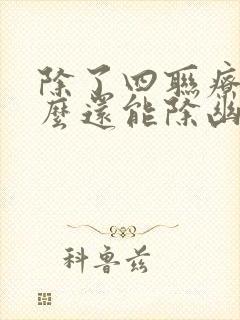 除了四聯療
麼還能除幽
科魯茲